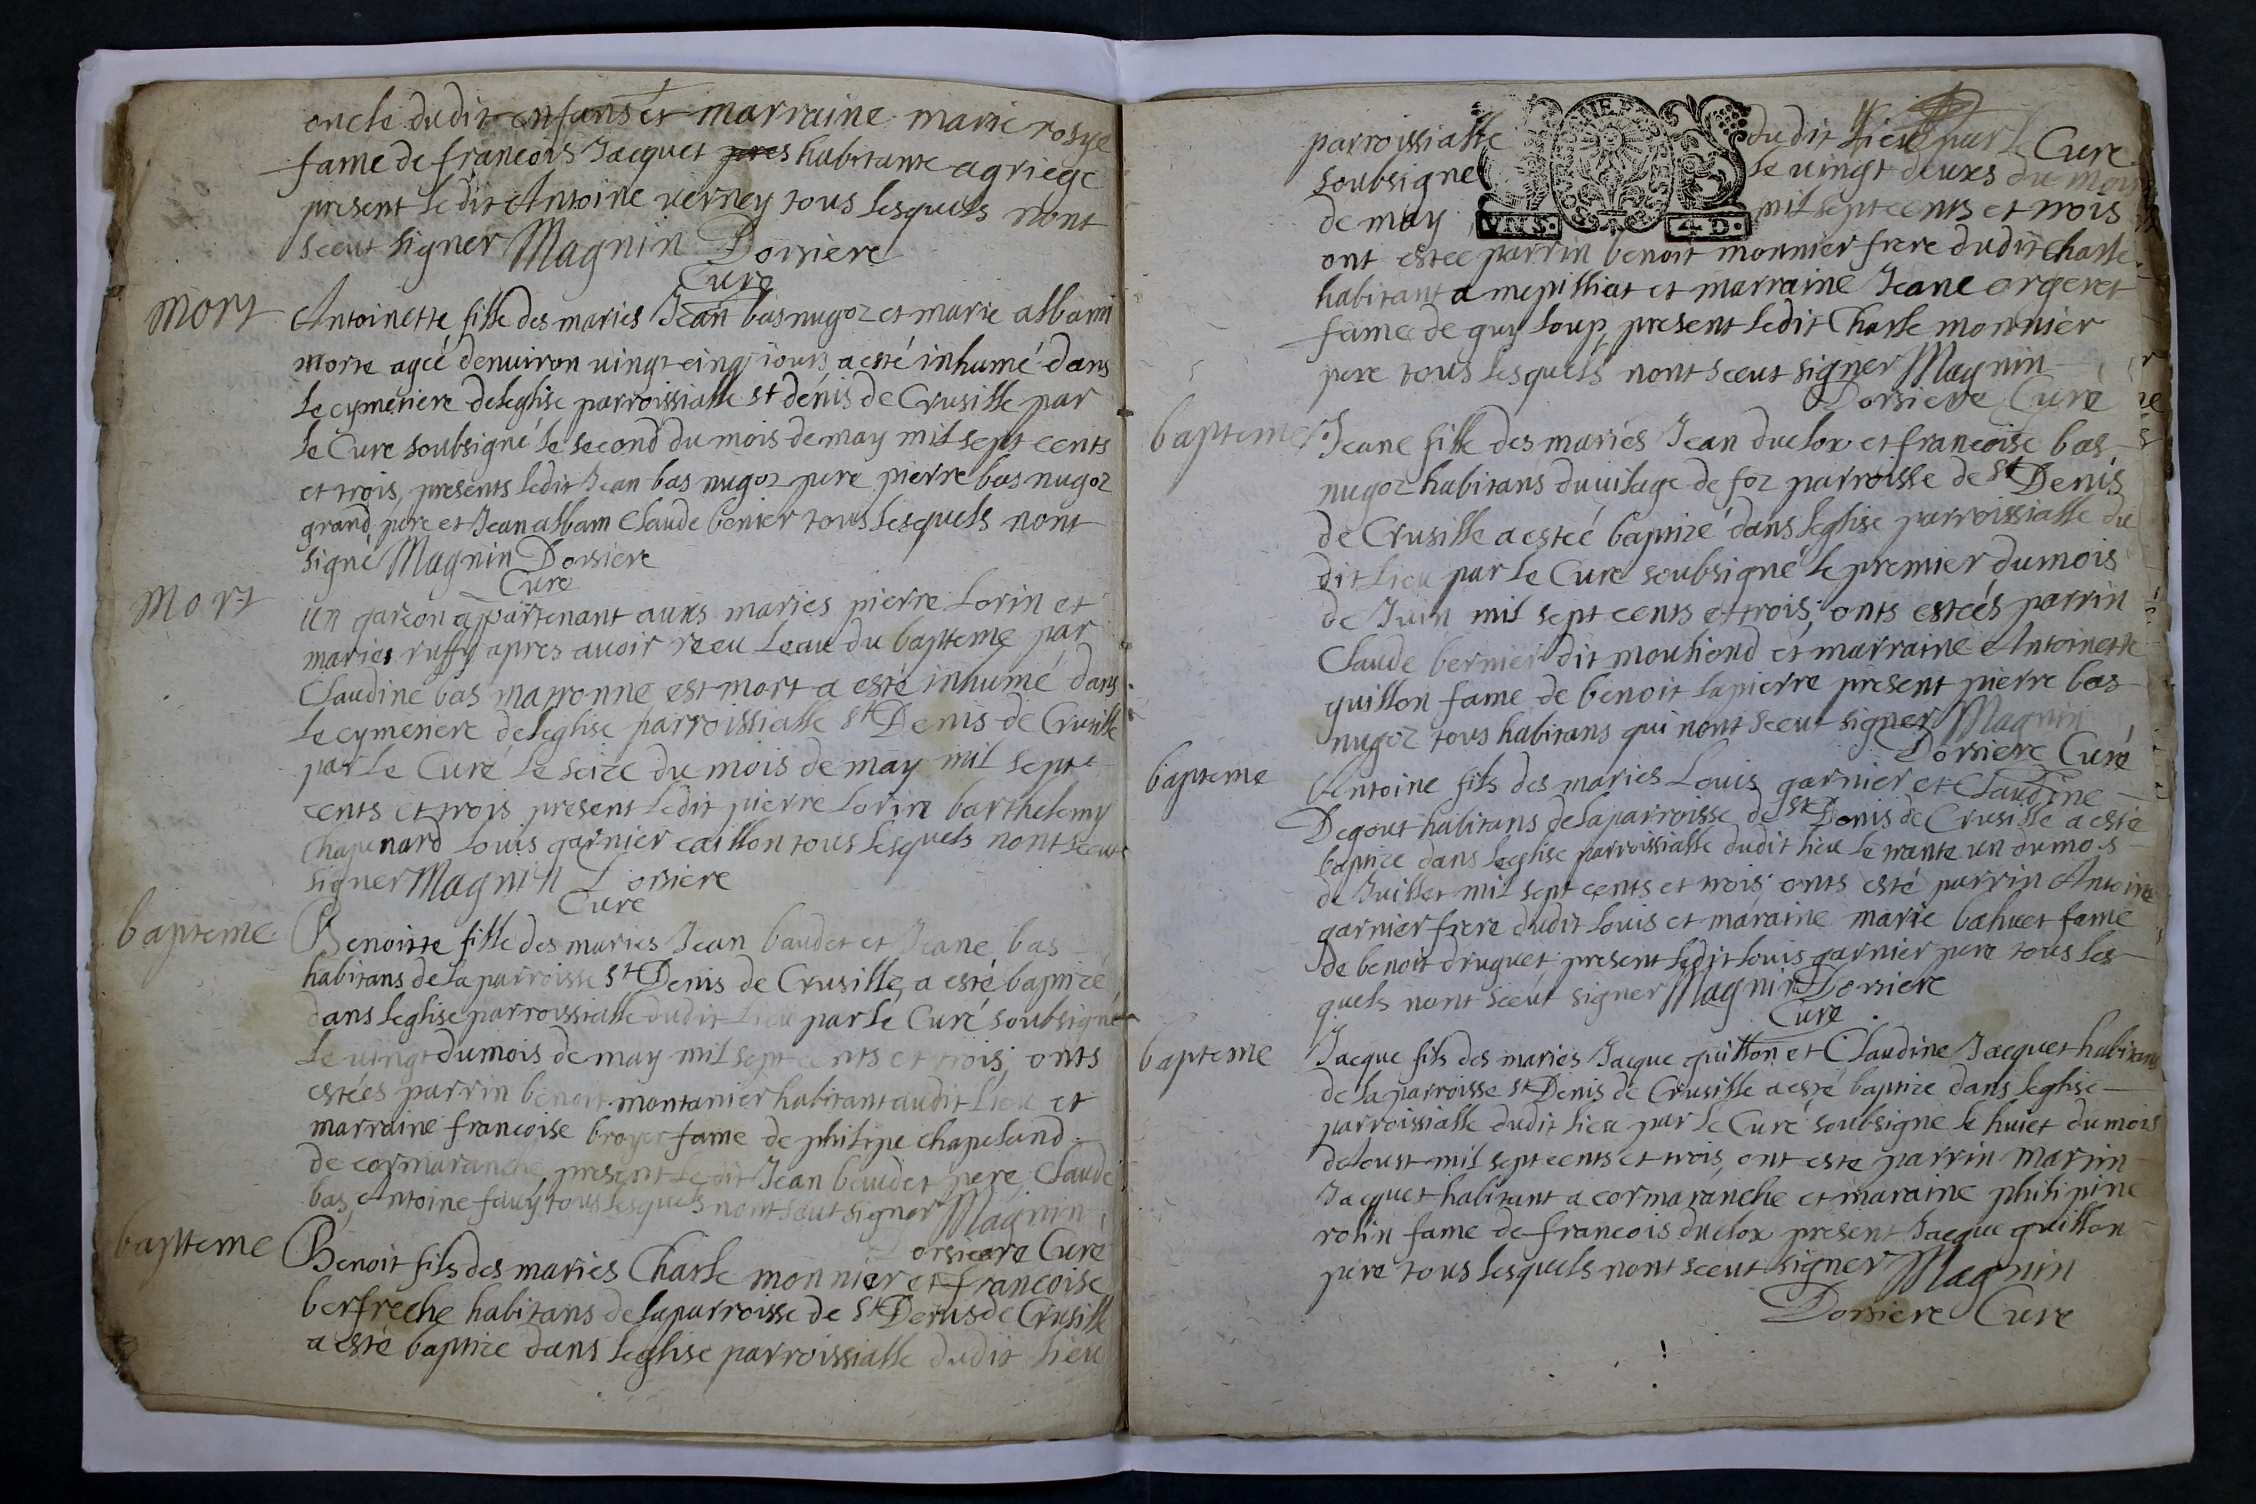 oncle dudit enfans et marraine marie rosye
fame de francois Jacquet pres habitante a griege
present ledit Antoine verney tous lesquels nont
sceut signer Magnin Dorsiere
Cure
mort Antoinette fille des maries Jean bas nugoz et marie albami
morte ageé denuiron uingt cinq iours a esté inhumé dans
le cymetiere deleglise parroissialle st dénis de Crusille par
le Cure soubsigné le second du mois de may mil sept cents
et trois, presents ledit Jean bas nugoz pere pierre bas nugoz
grand pere et Jean albam Claude benier tous lesequels nont
signé Magnin Dorsiere
Cure
Mort un garcon apartenant auxs maries pierre Lorin et
maries ruffy apres auoir receu Leau du bapteme par
Claudine bas matronne est mort a esté inhumé dans
le cymetiere deleglise parroissialle st Denis de Crusille
par le Curé le seize du mois de may mil sept
cents et trois present ledit pierre Lorin barthelemy
Chapenard Louis garnier caillon tous lesquels nont sceut
signer Magnin Dorsiere
Cure
bapteme Benoitte fille des maries Jean baudet et Jeane bas
habitans de la parroisse st Denis de Crusille, a esté baptizé
dans leglise parroissialle dudit Lieu par le Curé soubsigné
le uingt dumois de may mil sept cents et trois; onts
estées parrin benoit montanier habitant audit Lieu et
marraine francoise broyer fame de philipe chapeland
de cormaranche, present ledit Jean baudet pere Claude
bas, Antoine fauy tous lesquels nont sceut signer Magnin
Dorsiere Cure
bapteme Benoit fils des maries Charle monnier et francoise
berfreche habitans de laparroisse de st Denis de Crusille
a esté baptize dans leglise parroissialle dudit lieu
parroissialle dudit Lieu par le Cure
soubsigne le uingt deuxs du mois
de may mil sept cents et trois
VN S. 4 D.
ont estee parrin benoit monnier frere dudit Charle
habitant a mepilliat et marraine Jeane orgeret
fame de guy loup, present ledit Charle monnier
pere tous lesquels nont sceut signer Magnin
Dorsiere Curé
bapteme Jeane fille des mariés Jean duclox et francoise bas
nugoz habitans duuilage de foz parroisse de st Denis
de Crusille a esteé baptizé dans leglise parroissialle du
dit Lieu par le Cure soubsigné le premier dumois
de Juin mil sept cents et trois; onts esteés parrin
Claude bernier dit mouhond et marraine Antoinette
guillon fame de benoit lapierre present pierre bas
nugoz tous habitans qui nont sceut signer Magnin
Dorsiere Curé
bapteme Antoine fils des maries Louis garnier et Claudine
Degout habitans de laparroisse de st Denis de Crusille a esté
baptize dans leglise parroissialle dudit lieu le trante un du mois
de Juillet mil sept cents et trois onts esté parrin Antoine
garnier frere dudit louis et maraine marie bahuet fame
de benoit druguet present ledit louis garnier pere tous les
quels nont sceut signer Magnin Dorsiere
Cure
bapteme Jacque fils des maries Jacque guillon et Claudine Jacquet habitans
de la parroisse st Denis de Crusille a esté baptize dans leglise
parroissialle dudit lieu par le Curé soubsigne le huict du mois
daoust mil sept cents et trois, ont este parrin martin
Jacquet habitant a cormaranche et maraine philipine
rolin fame de francois duclox present Jacque guillon
pere tous lesquels nont sceut signer Magnin
Dorsiere Cure